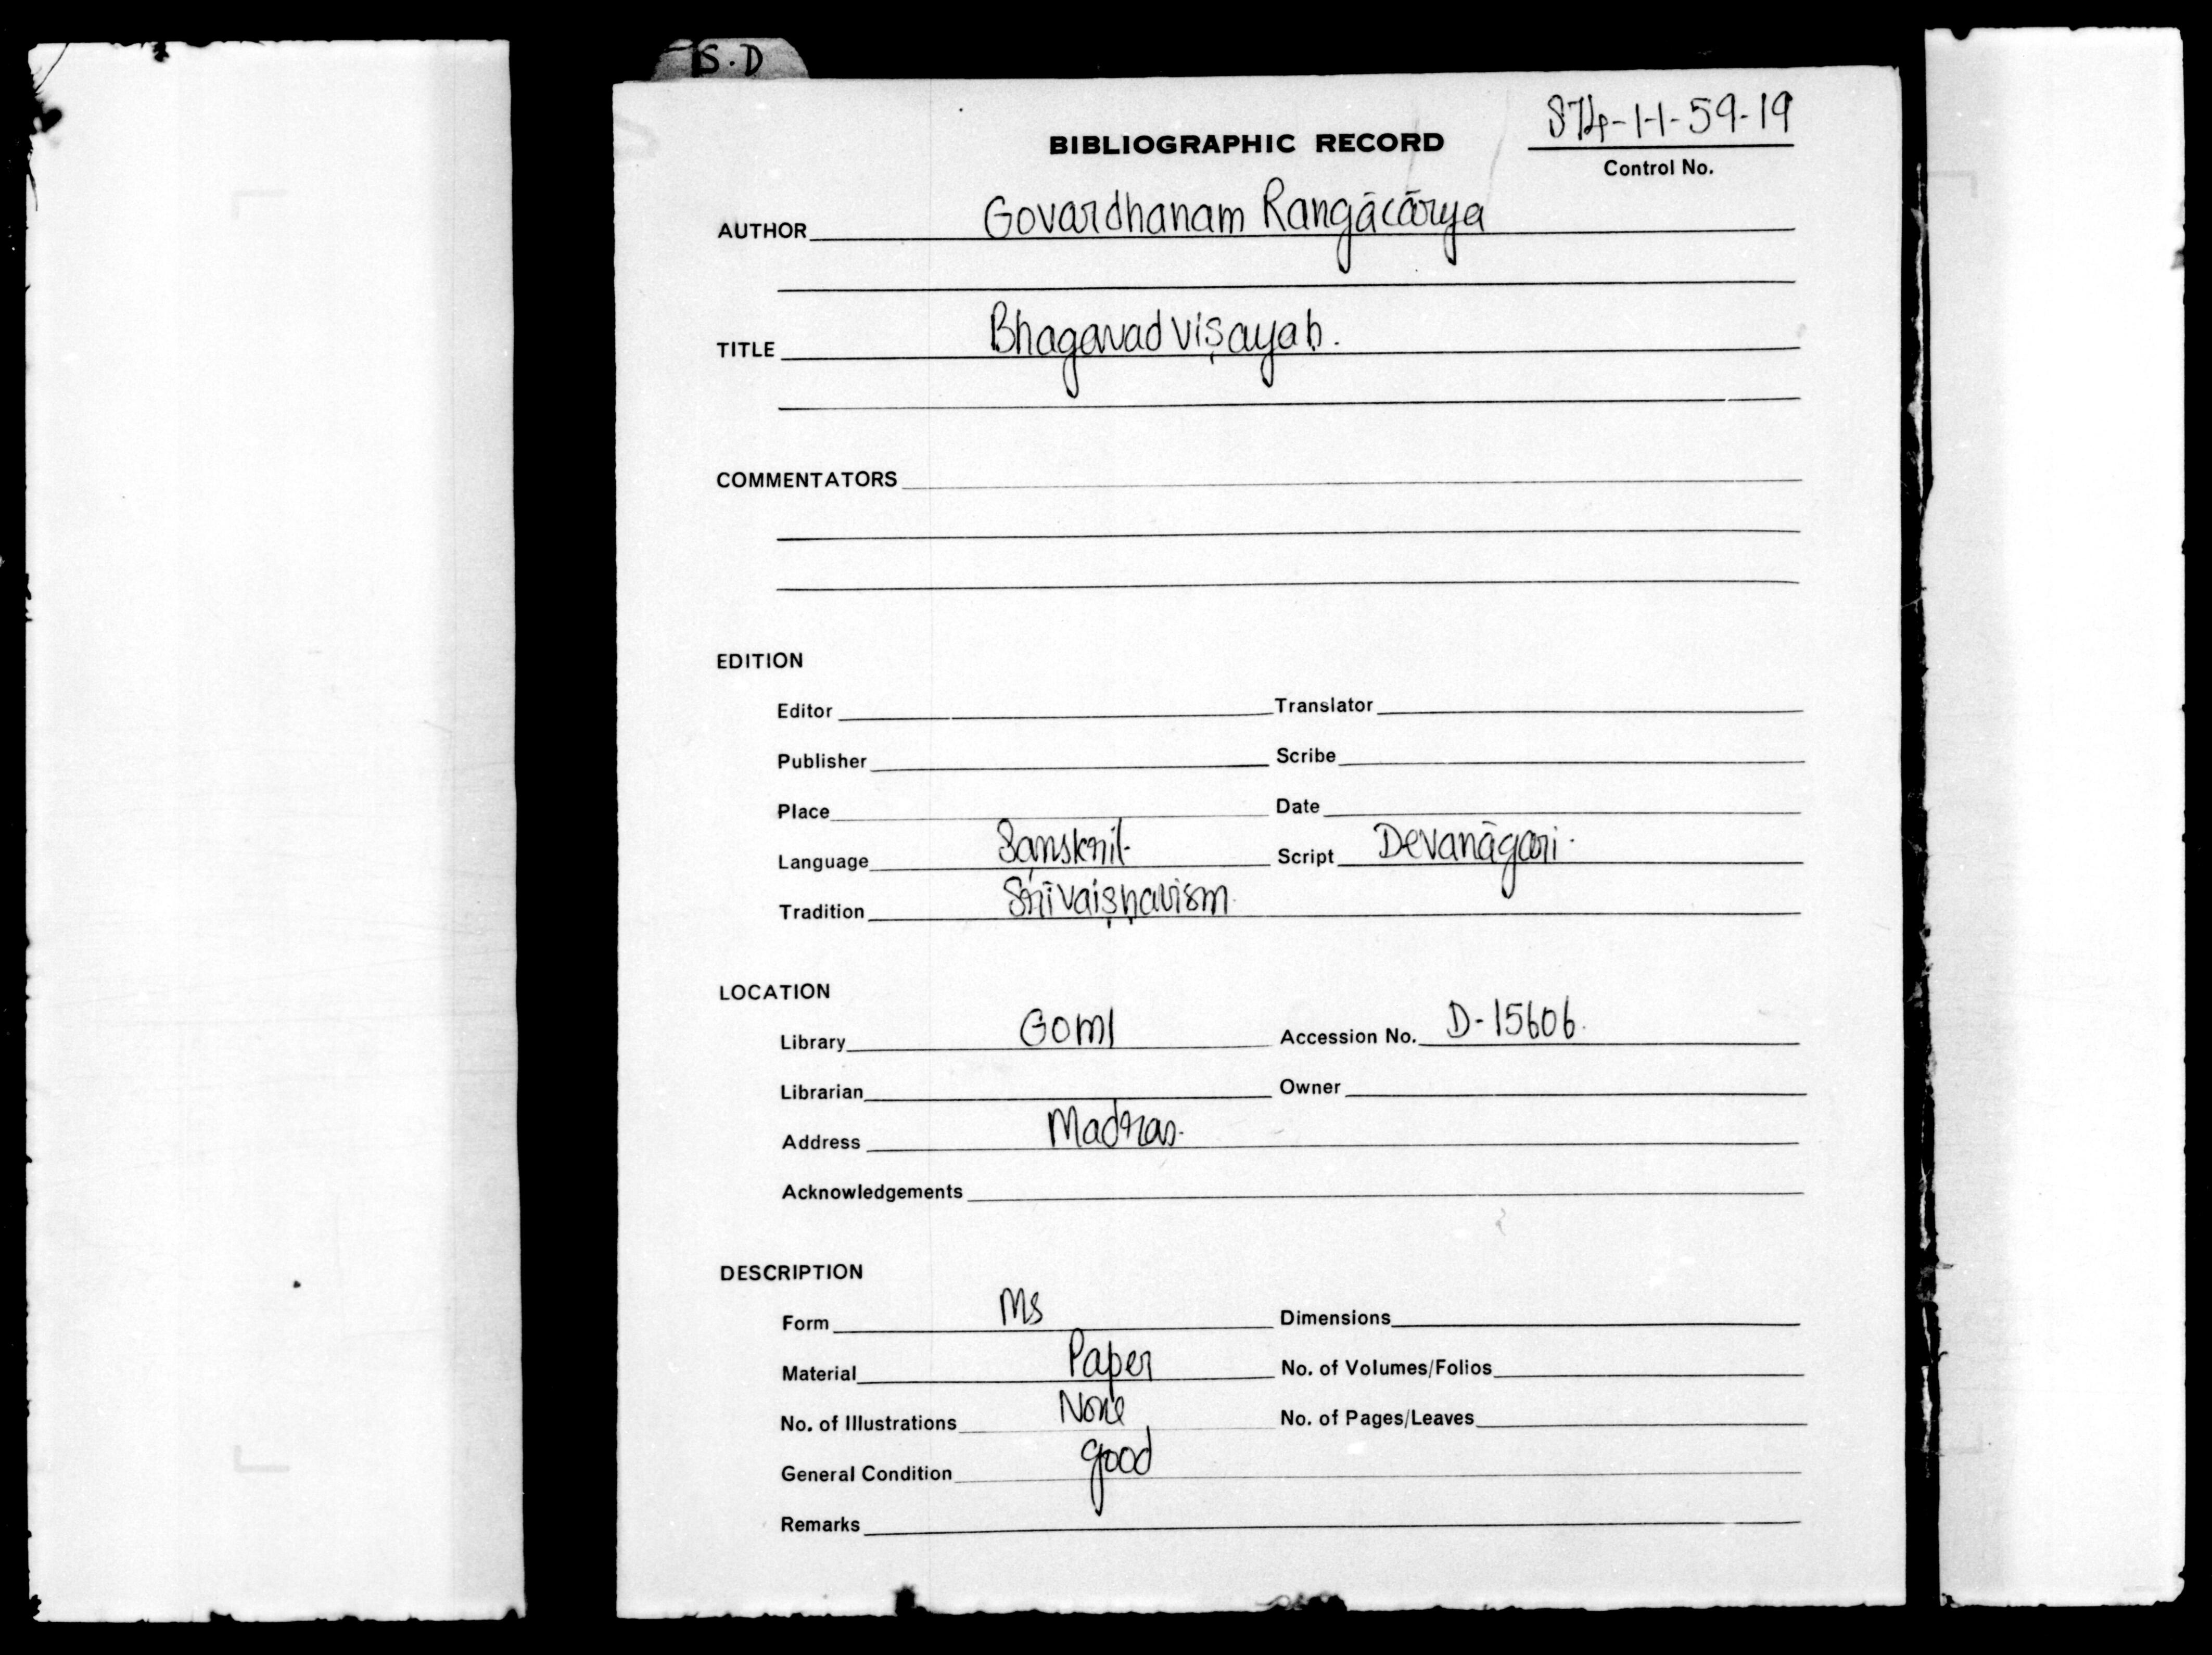 S.D
S74-1-1-59-19
BIBLIOGRAPHIC RECORD
Control No.
AUTHOR Govardhanam Rangācārya
TITLE Bhagavadviṣayaḥ.
COMMENTATORS
EDITION
Editor Translator
Publisher Scribe
Place Date
Language Sanskrit Script Devanāgari.
Tradition Srīvaiṣṇavism.
LOCATION
Library GOML Accession No. D-15606.
Librarian Owner
Address Madras.
Acknowledgements
DESCRIPTION
Form Ms Dimensions
Material Paper No. of Volumes/Folios
No. of Illustrations None No. of Pages/Leaves
General Condition good
Remarks